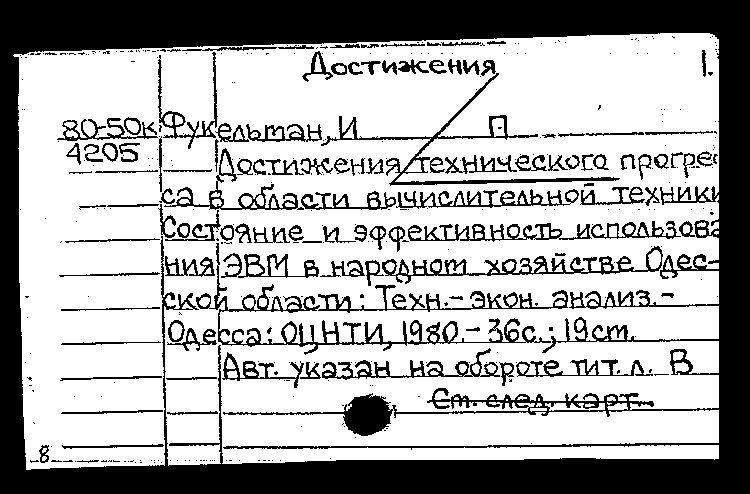 Достижения 1.
80-50к Фукельман, И П
4205 Достижения технического прогрес
са в области вычислительной техники
Состояние и эффективность использова
ния ЭВМ в народном хозяйстве Одес-
ской области: Техн.-экон. анализ.-
Одесса: ОЦНТИ, 1980.- 36с.; 19см.
Авт. указан на обороте тит. л. В
См. след. карт.
8